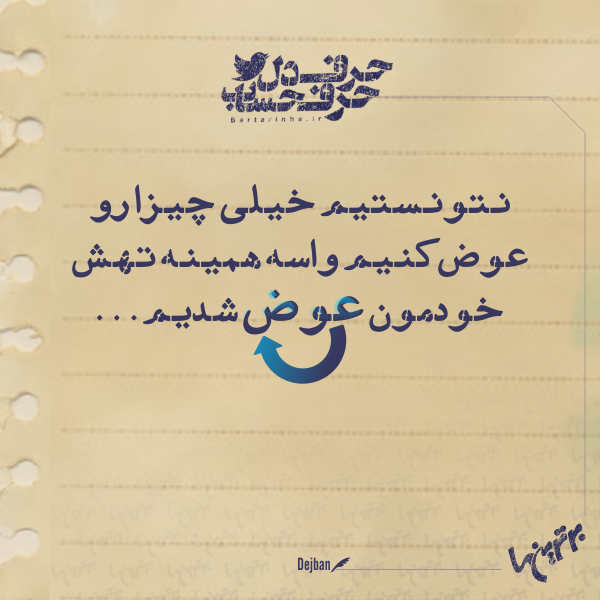 حرف دل
حرف حساب
Bartarinha.ir
نتونستیم خیلی چیزارو
عوض کنیم واسه همینه تهش
خودمون عوض شدیم...
Dejban
برترین‌ها